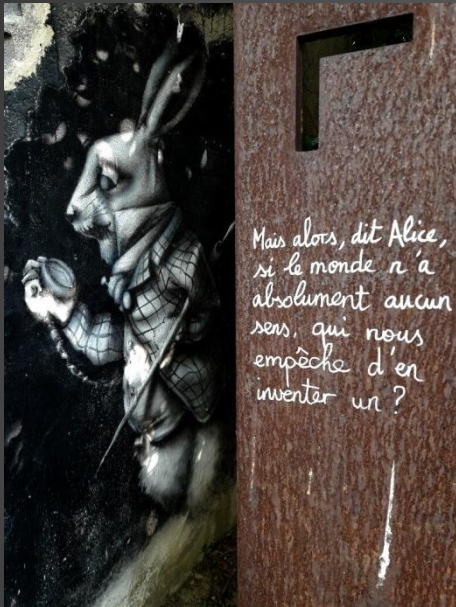 Mais alors, dit Alice,
si le monde n'a
absolument aucun
sens, qui nous
empêche d'en
inventer un ?